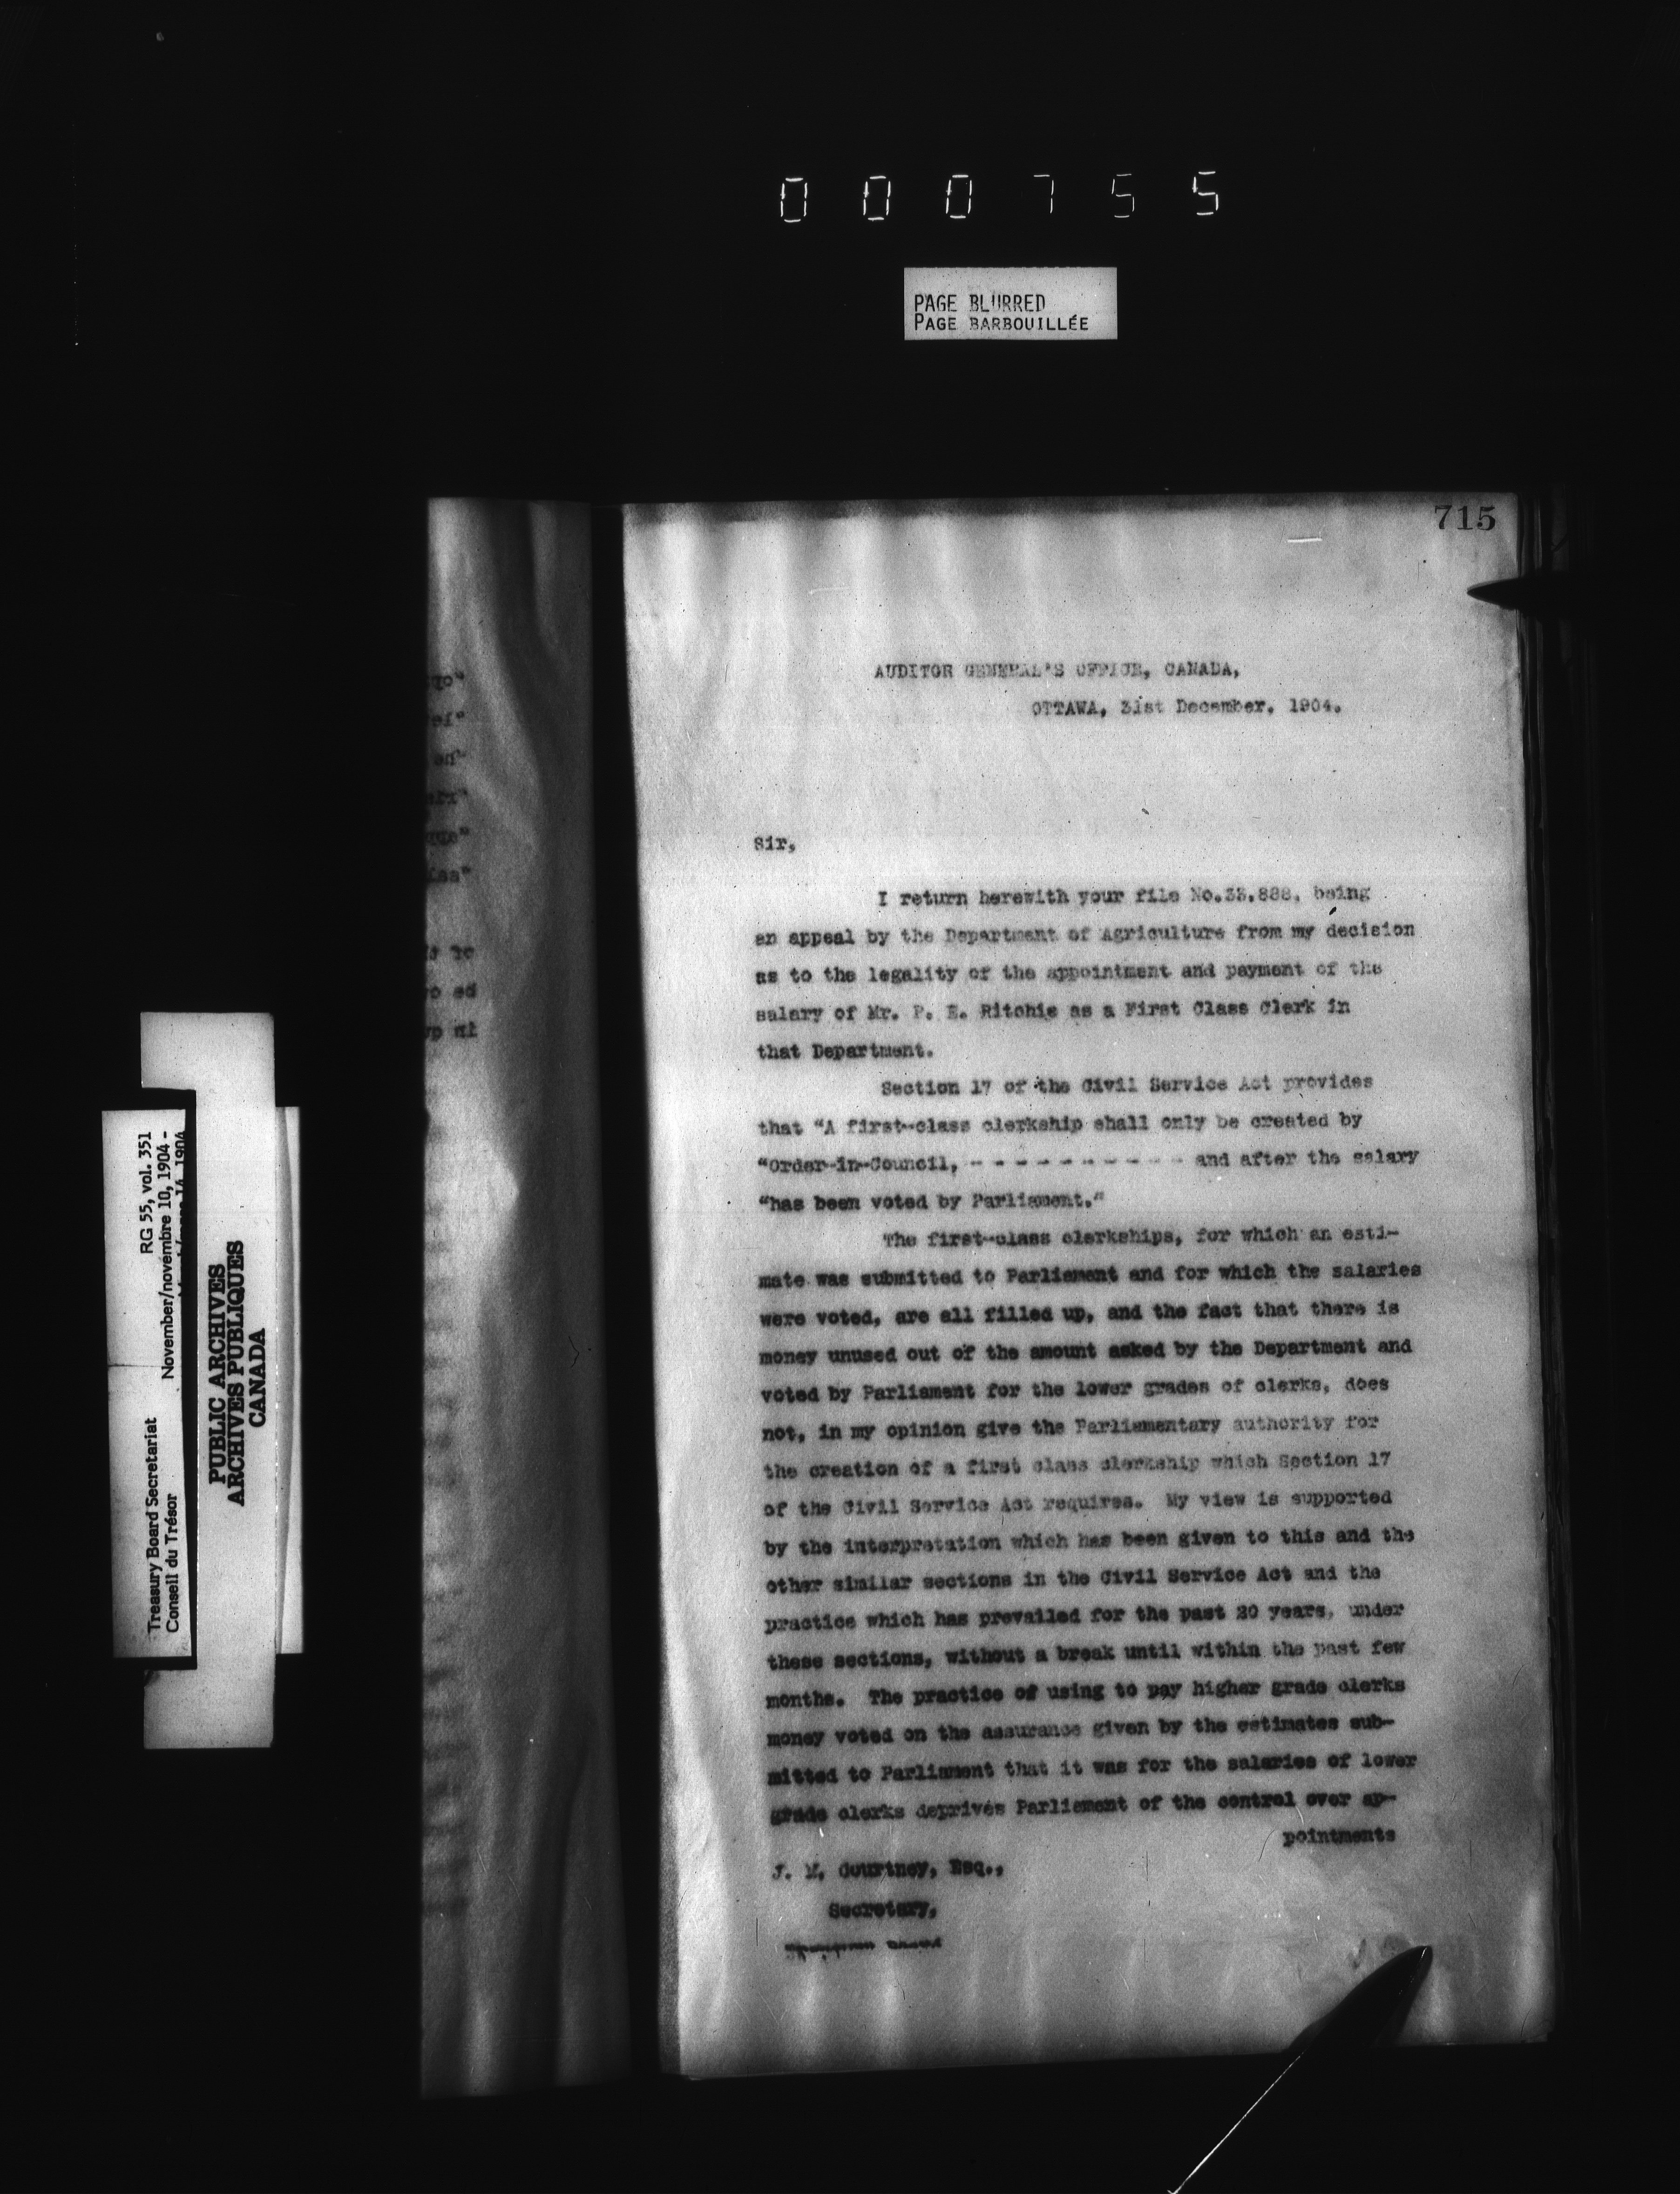 000755
PAGE BLURRED
PAGE BARBOUILLÉE
715
AUDITOR GENERAL'S OFFICE, CANADA,
OTTAWA, 31st December, 1904.
Sir,
I return herewith your file No.33,888, being
an appeal by the Department of Agriculture from my decision
as to the legality of the appointment and payment of the
salary of Mr. P. E. Ritchie as a First Class Clerk in
that Department.
Section 17 of the Civil Service Act provides
that "A first-class clerkship shall only be created by
"Order-in-Council, - - - - - - - - - - and after the salary
"has been voted by Parliament."
The first-class clerkships, for which an esti-
mate was submitted to Parliament and for which the salaries
were voted, are all filled up, and the fact that there is
money unused out of the amount asked by the Department and
voted by Parliament for the lower grades of clerks, does
not, in my opinion give the Parliamentary authority for
the creation of a first class clerkship which Section 17
of the Civil Service Act requires. My view is supported
by the interpretation which has been given to this and the
other similar sections in the Civil Service Act and the
practice which has prevailed for the past 20 years, under
these sections, without a break until within the past few
months. The practice of using to pay higher grade clerks
money voted on the assurance given by the estimates sub-
mitted to Parliament that it was for the salaries of lower
grade clerks deprives Parliament of the control over ap-
pointments
J. M. Courtney, Esq.,
Secretary,
Treasury Board Secretariat RG 55, vol. 351
Conseil du Trésor November/novembre 10, 1904 -
1904
PUBLIC ARCHIVES
ARCHIVES PUBLIQUES
CANADA